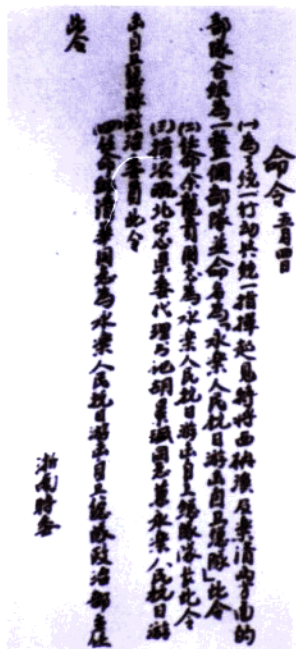 命令 五月四日
(一)为了统一行动共统一指揮起見特将西楠溪及楽清方面的
部隊合组為一整個部隊並命名為「永楽人民抗日游击自卫總隊」此令
(二)任命余龍貴同志為永楽人民抗日游击自卫總隊隊长此令
(三)指派瓯北中心県委代理书记胡景瑊同志兼永楽人民抗日游
击自卫總隊政治委員此令
(四)任命 清華同志為永楽人民抗日游击自卫總隊政治部主任
此令
浙南特委